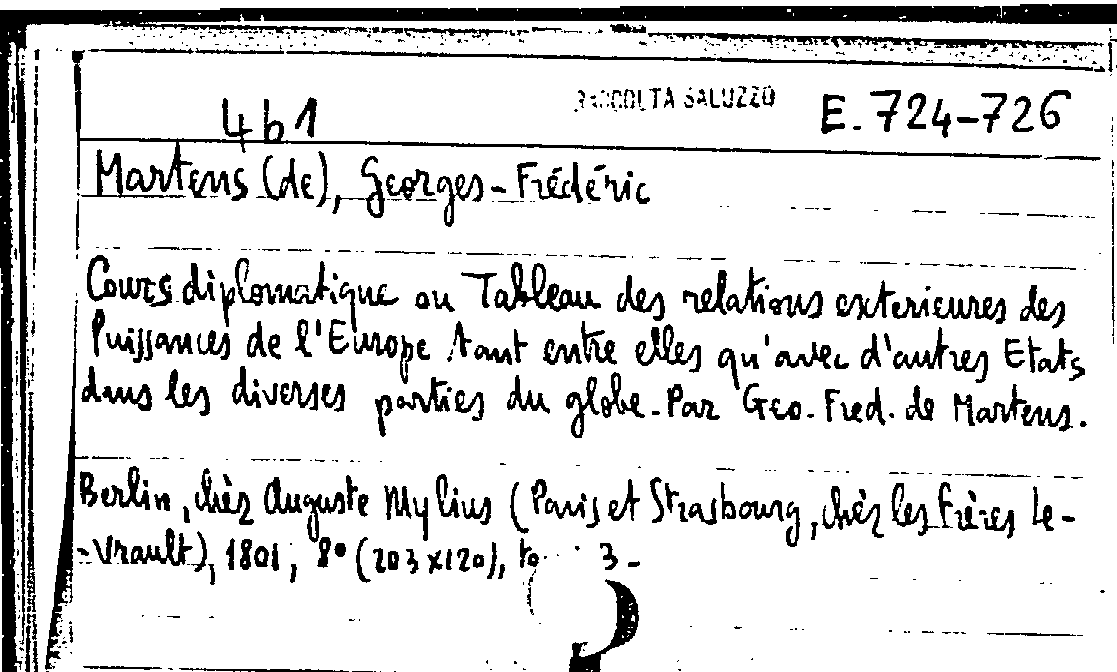 461 RACCOLTA SALUZZO E. 724-726
Martens (de), Georges-Frédéric
Cours diplomatique ou Tableau des relations exterieures des
Puissances de l'Europe tant entre elles qu'avec d'autres Etats
dans les diverses parties du globe. Par Geo. Fred. de Martens.
Berlin, chèz Auguste Mylius (Paris et Strasbourg, chèz les frères Le-
-Vrault), 1801, 8° (203x120), to 3-